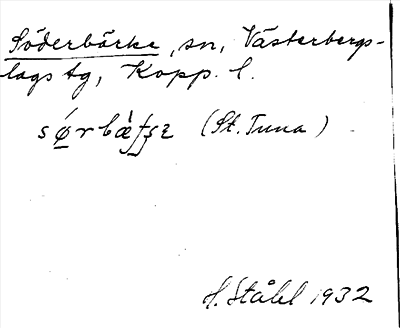 Söderbärke, sn, Västerbergs-
lags tg, Kopp. l.
(St. Tuna)
H. Ståhl 1932